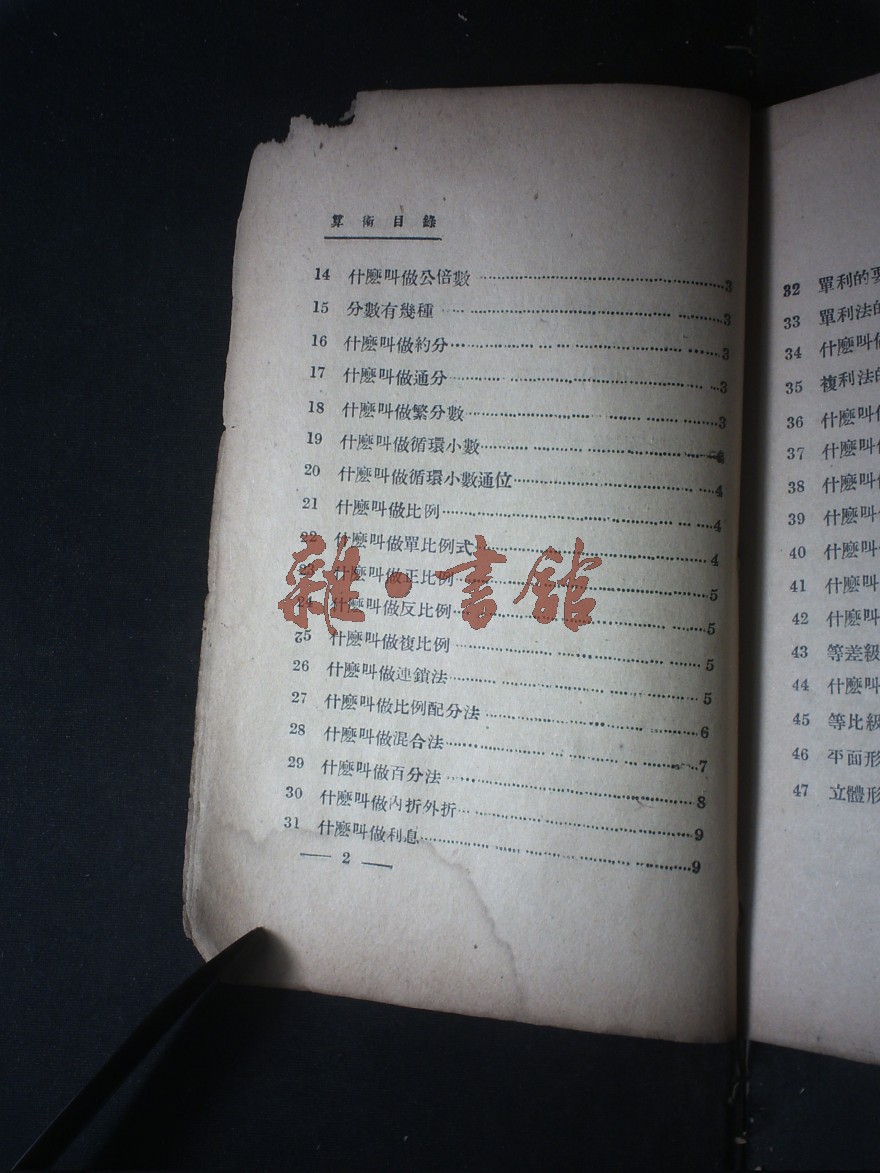 算術目錄
14 什麽叫做公倍數 3
15 分數有幾種 3
16 什麽叫做約分 3
17 什麽叫做通分 3
18 什麽叫做繁分數 3
19 什麽叫做循環小數 4
20 什麽叫做循環小數通位 4
21 什麽叫做比例 4
22 什麽叫做單比例式 4
23 什麽叫做正比例 5
24 什麽叫做反比例 5
25 什麽叫做複比例 5
26 什麽叫做連鎖法 5
27 什麽叫做比例配分法 6
28 什麽叫做混合法 7
29 什麽叫做百分法 8
30 什麽叫做內折外折 9
31 什麽叫做利息 9
2
雜·書館
32 單利的要
33 單利法的
34 什麽叫做
35 複利法的
36 什麽叫做
37 什麽叫做
38 什麽叫做
39 什麽叫做
40 什麽叫
41 什麽叫
42 什麽叫
43 等差級
44 什麽叫
45 等比級
46 平面形
47 立體形